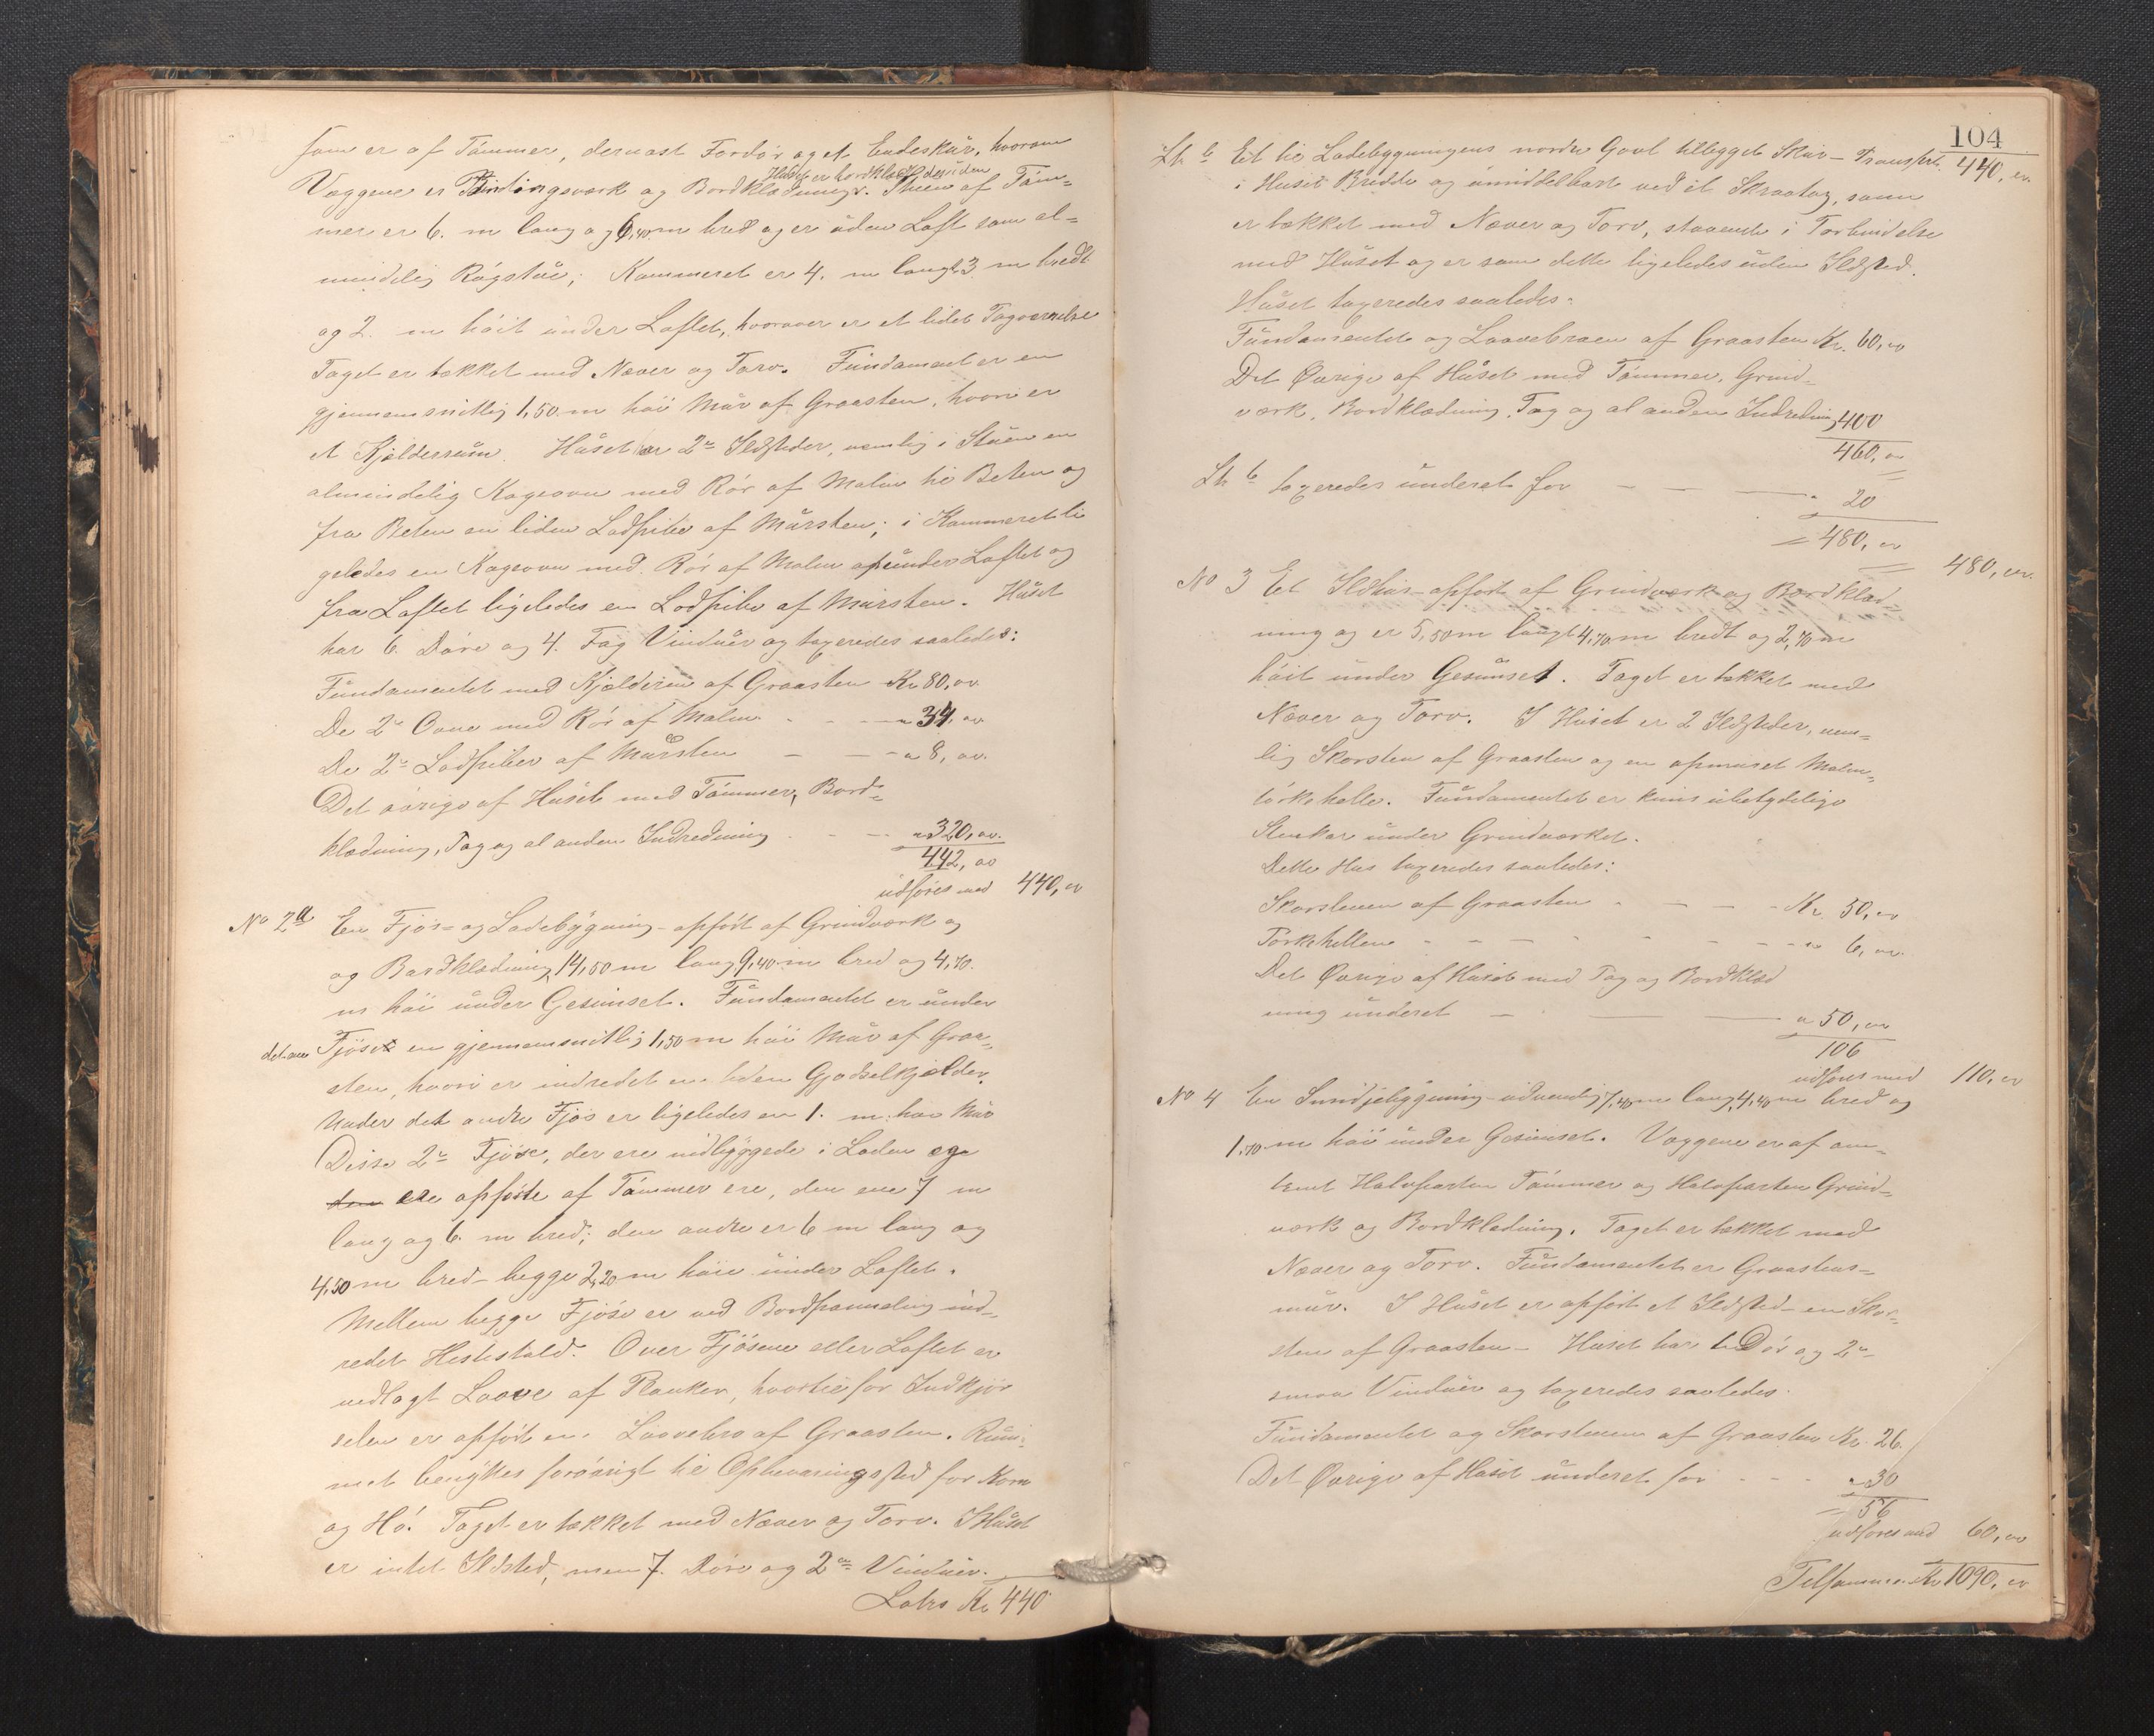 som er af Tømmer, dernæst Fordør og et Endeskur, hvorom
Huset er bordklædt desuden
Væggene er Bindingsværk og Bordklædning. Stuen af Tøm-
mer er 6. m lang og 6,40 m bred og er uden Loft som al-
mindelig Røgstue; Kammeret er 4. m langt 3. m bredt
og 2. m høit under Loftet, hvorover er et lidet Tagværelse
Taget er tækket med Næver og Torv. Fundament er en
gjennemsnitlig 1,50 m høi Mur af Graasten, hvori er
et Kjelderrum. Huset har 2de Ildsteder, nemlig i Stuen en
almindelig Kogeovn med Rør af Malm til Beten og
fra Beten en liden Lodpibe af Mursten; i Kammeret li
geledes en Kogeovn med Rør af Malm op under Loftet og
fra Loftet ligeledes en Lodpibe af Mursten. Huset
har 6. Døre og 4. Fag Vinduer og taxeredes saaledes:
Fundamentet med Kjelderen af Graasten Kr. 80, oo
De 2de Ovne med Rør af Malm - - - " 34, oo
De 2de Lodpiber af Mursten - - - " 8, oo.
Det øvrige af Huset med Tømmer, Bord-
klædning, Tag og al anden Indredning - - - " 320, oo.
442, oo
udføres med 440, oo
No 2a En Fjøs- og Ladebygning - opført af Grindværk og
og Bordklædning, 14,50 m lang 9,40 m bred og 4,70.
m høi under Gesimset. Fundamentet er under
det ene Fjøset en gjennemsnitlig 1,50 m høi Mur af Graa-
sten, hvori er indredet en liden Gjødselkjelder.
Under det andre Fjøs er ligeledes en 1. m. høi Mur
Disse 2de Fjøse, der ere indbyggede i Laden og
den ere opførte af Tømmer ere, den ene 7 m
lang og 6. m bred; den andre er 6 m lang og
4,50 m bred - begge 2,20 m høie under Loftet.
Mellem begge Fjøse er ved Bordpanneling ind-
redet Hestestald. Over Fjøsene eller Loftet er
nedlagt Laave af Planker, hvortil for Indkjør
selen er opført en Laavebro af Graasten. Rum-
met benyttes forøvrigt til Opbevaringssted for Korn
og Hø. Taget er tækket med Næver og Torv. I Huset
er intet Ildsted, men 7. Døre og 2de Vinduer.
Latus Kr 440
104
Lit b Et til Ladebygningens nordre Gavl tillegget Skur - Transport. 440, oo
i Husets Bredde og umiddelbart ved et Skraatag, som
er tækket med Næver og Torv, staaende i Forbindelse
med Huset og er som dette ligeledes uden Ildsted.
Huset taxeredes saaledes:
Fundamentet og Laavebroen af Graasten Kr. 60, oo
Det Øvrige af Huset med Tømmer, Grind-
værk, Bordklædning, Tag og al anden Indredning 400
460, oo
Lit b taxeredes underet for - - - " 20
= 480, oo 480, oo.
No 3 Et Ildhus - opført af Grindværk og Bordklæd-
ning og er 5,50 m langt 4,70 m bredt og 2,70 m
høit under Gesimset. Taget er tækket med
Næver og Torv. I Huset er 2 Ildsteder, nem-
lig Skorsten af Graasten og en opmuret Malm-
tørkehelle. Fundamentet er kuns ubetydelige
Stenkar under Grindværket.
Dette Hus taxeredes saaledes:
Skorstenen af Graasten - - - Kr. 50, oo
Tørkehellen - - - - - - - " 6, oo.
Det Øvrige af Huset med Tag og Bordklæd
ning underet - - - " 50, oo
106
udføres med 110, oo
No 4 En Smidjebygning - udvendig 7,40 m lang, 4,40 m bred og
1,70 m høi under Gesimset. Væggene er af om-
trent Halvparten Tømmer og Halvparten Grind-
værk og Bordklædning. Taget er tækket med
Næver og Torv. Fundamentet er Graastens-
mur. I Huset er opført et Ildsted - en Skor-
sten af Graasten - Huset har 1 Dør og 2de
smaa Vinduer og taxeredes saaledes:
Fundamentet og Skorstenen af Graasten Kr. 26.
Det Øvrige af Huset underet for - - - " 30
= 56
udføres med 60, oo
Tilsammen Kr 1090, oo